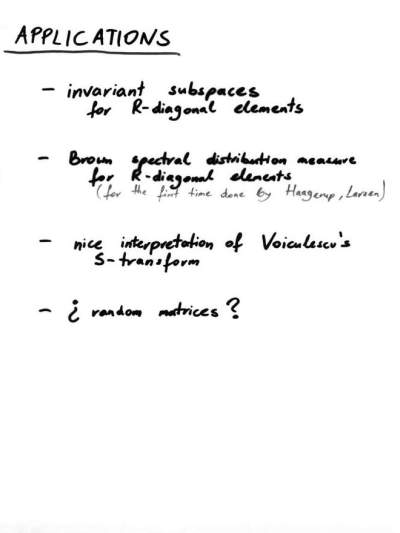 APPLICATIONS
- invariant subspaces
for R-diagonal elements
- Brown spectral distribution measure
for R-diagonal elements
(for the first time done by Haagerup, Larsen)
- nice interpretation of Voiculescu's
S-transform
- ¿ random matrices?